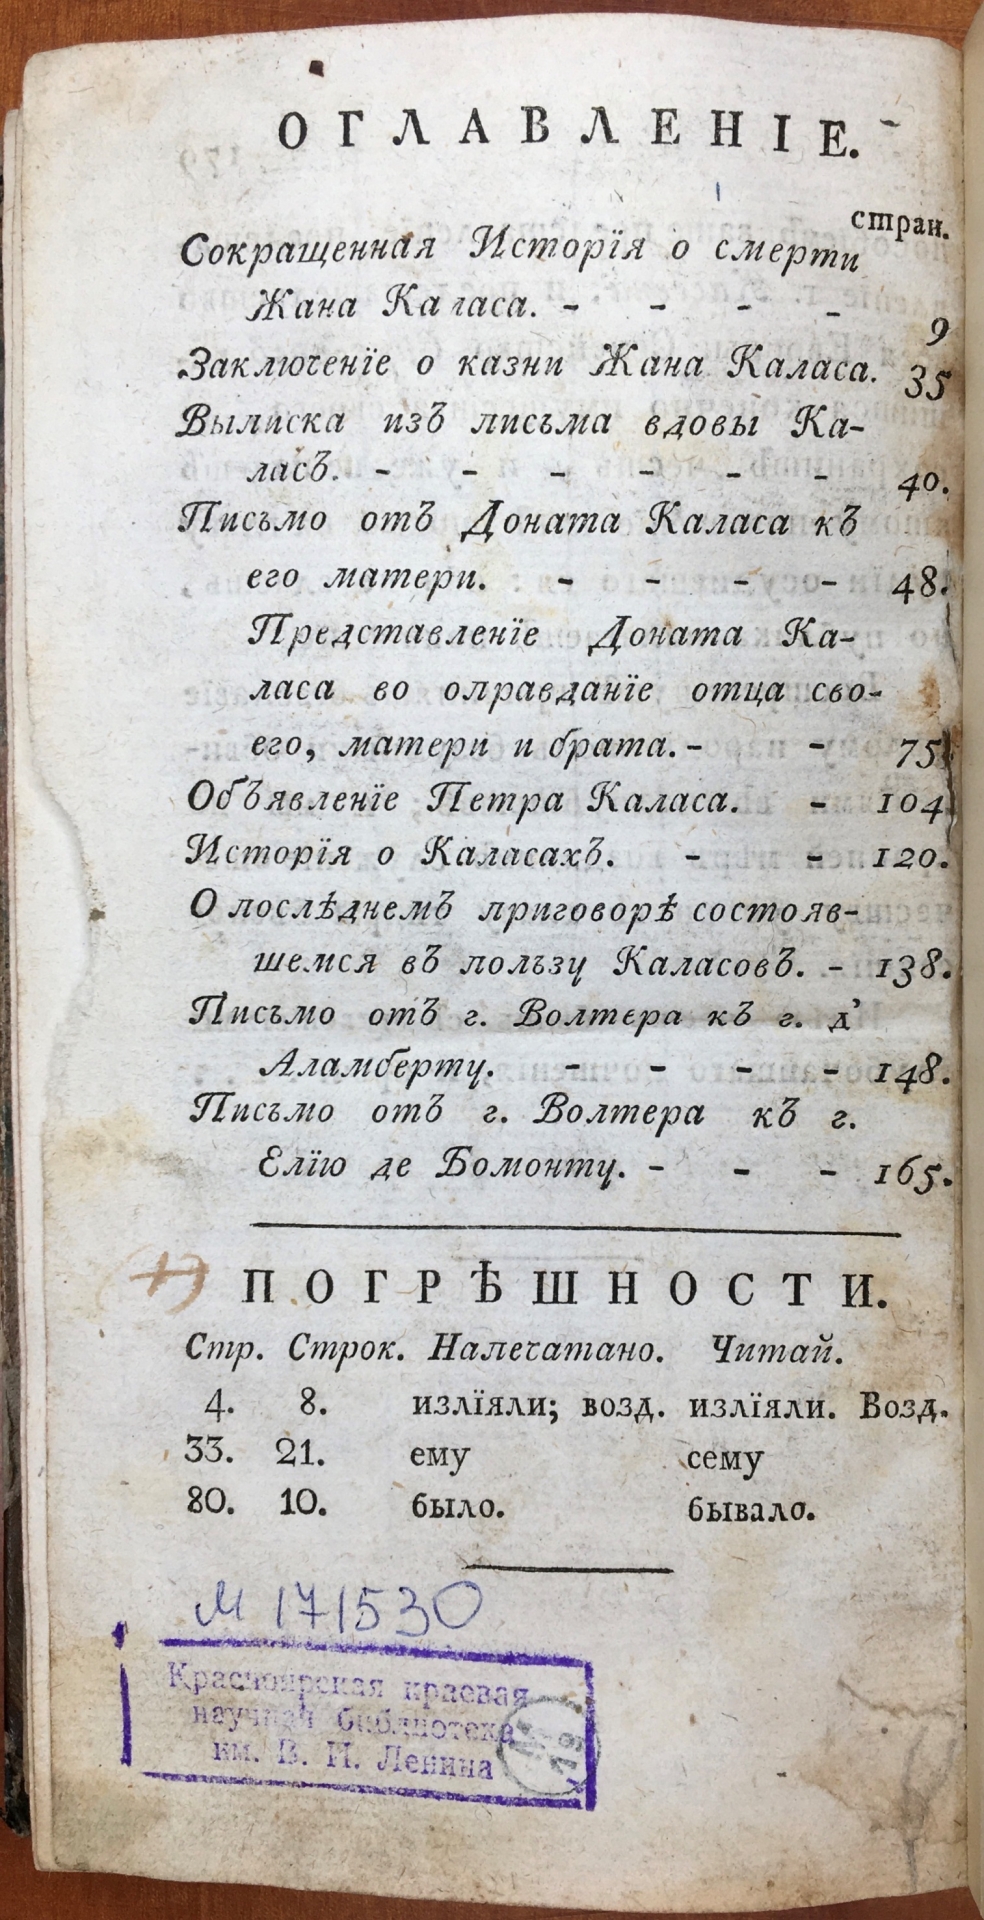 ОГЛАВЛЕНІЕ.
стран.
Сокращенная Исторїя о смерти
Жана Каласа. - - - - 9
Заключенїе о казни Жана Каласа. 35
Выписка изъ письма вдовы Ка-
ласъ. - - - - - - 40.
Письмо отъ Доната Каласа къ
его матери. - - - - 48.
Представленїе Доната Ка-
ласа во оправданїе отца сво-
его, матери и брата. - - 75
Объявленїе Петра Каласа. - 104
Исторїя о Каласахъ. - - 120.
О послѣднемъ приговорѣ состояв-
шемся въ пользу Каласовъ. - 138.
Письмо отъ г. Волтера къ г. д’
Аламберту. - - - - 148.
Письмо отъ г. Волтера къ г.
Елїю де Бомонту. - - - 165.
ПОГРѢШНОСТИ.
Стр. Строк. Напечатано. Читай.
4. 8. излїяли; возд. излїяли. Возд.
33. 21. ему сему
80. 10. было. бывало.
М 171530
Красноярская краевая
научная библиотека
им. В. И. Ленина